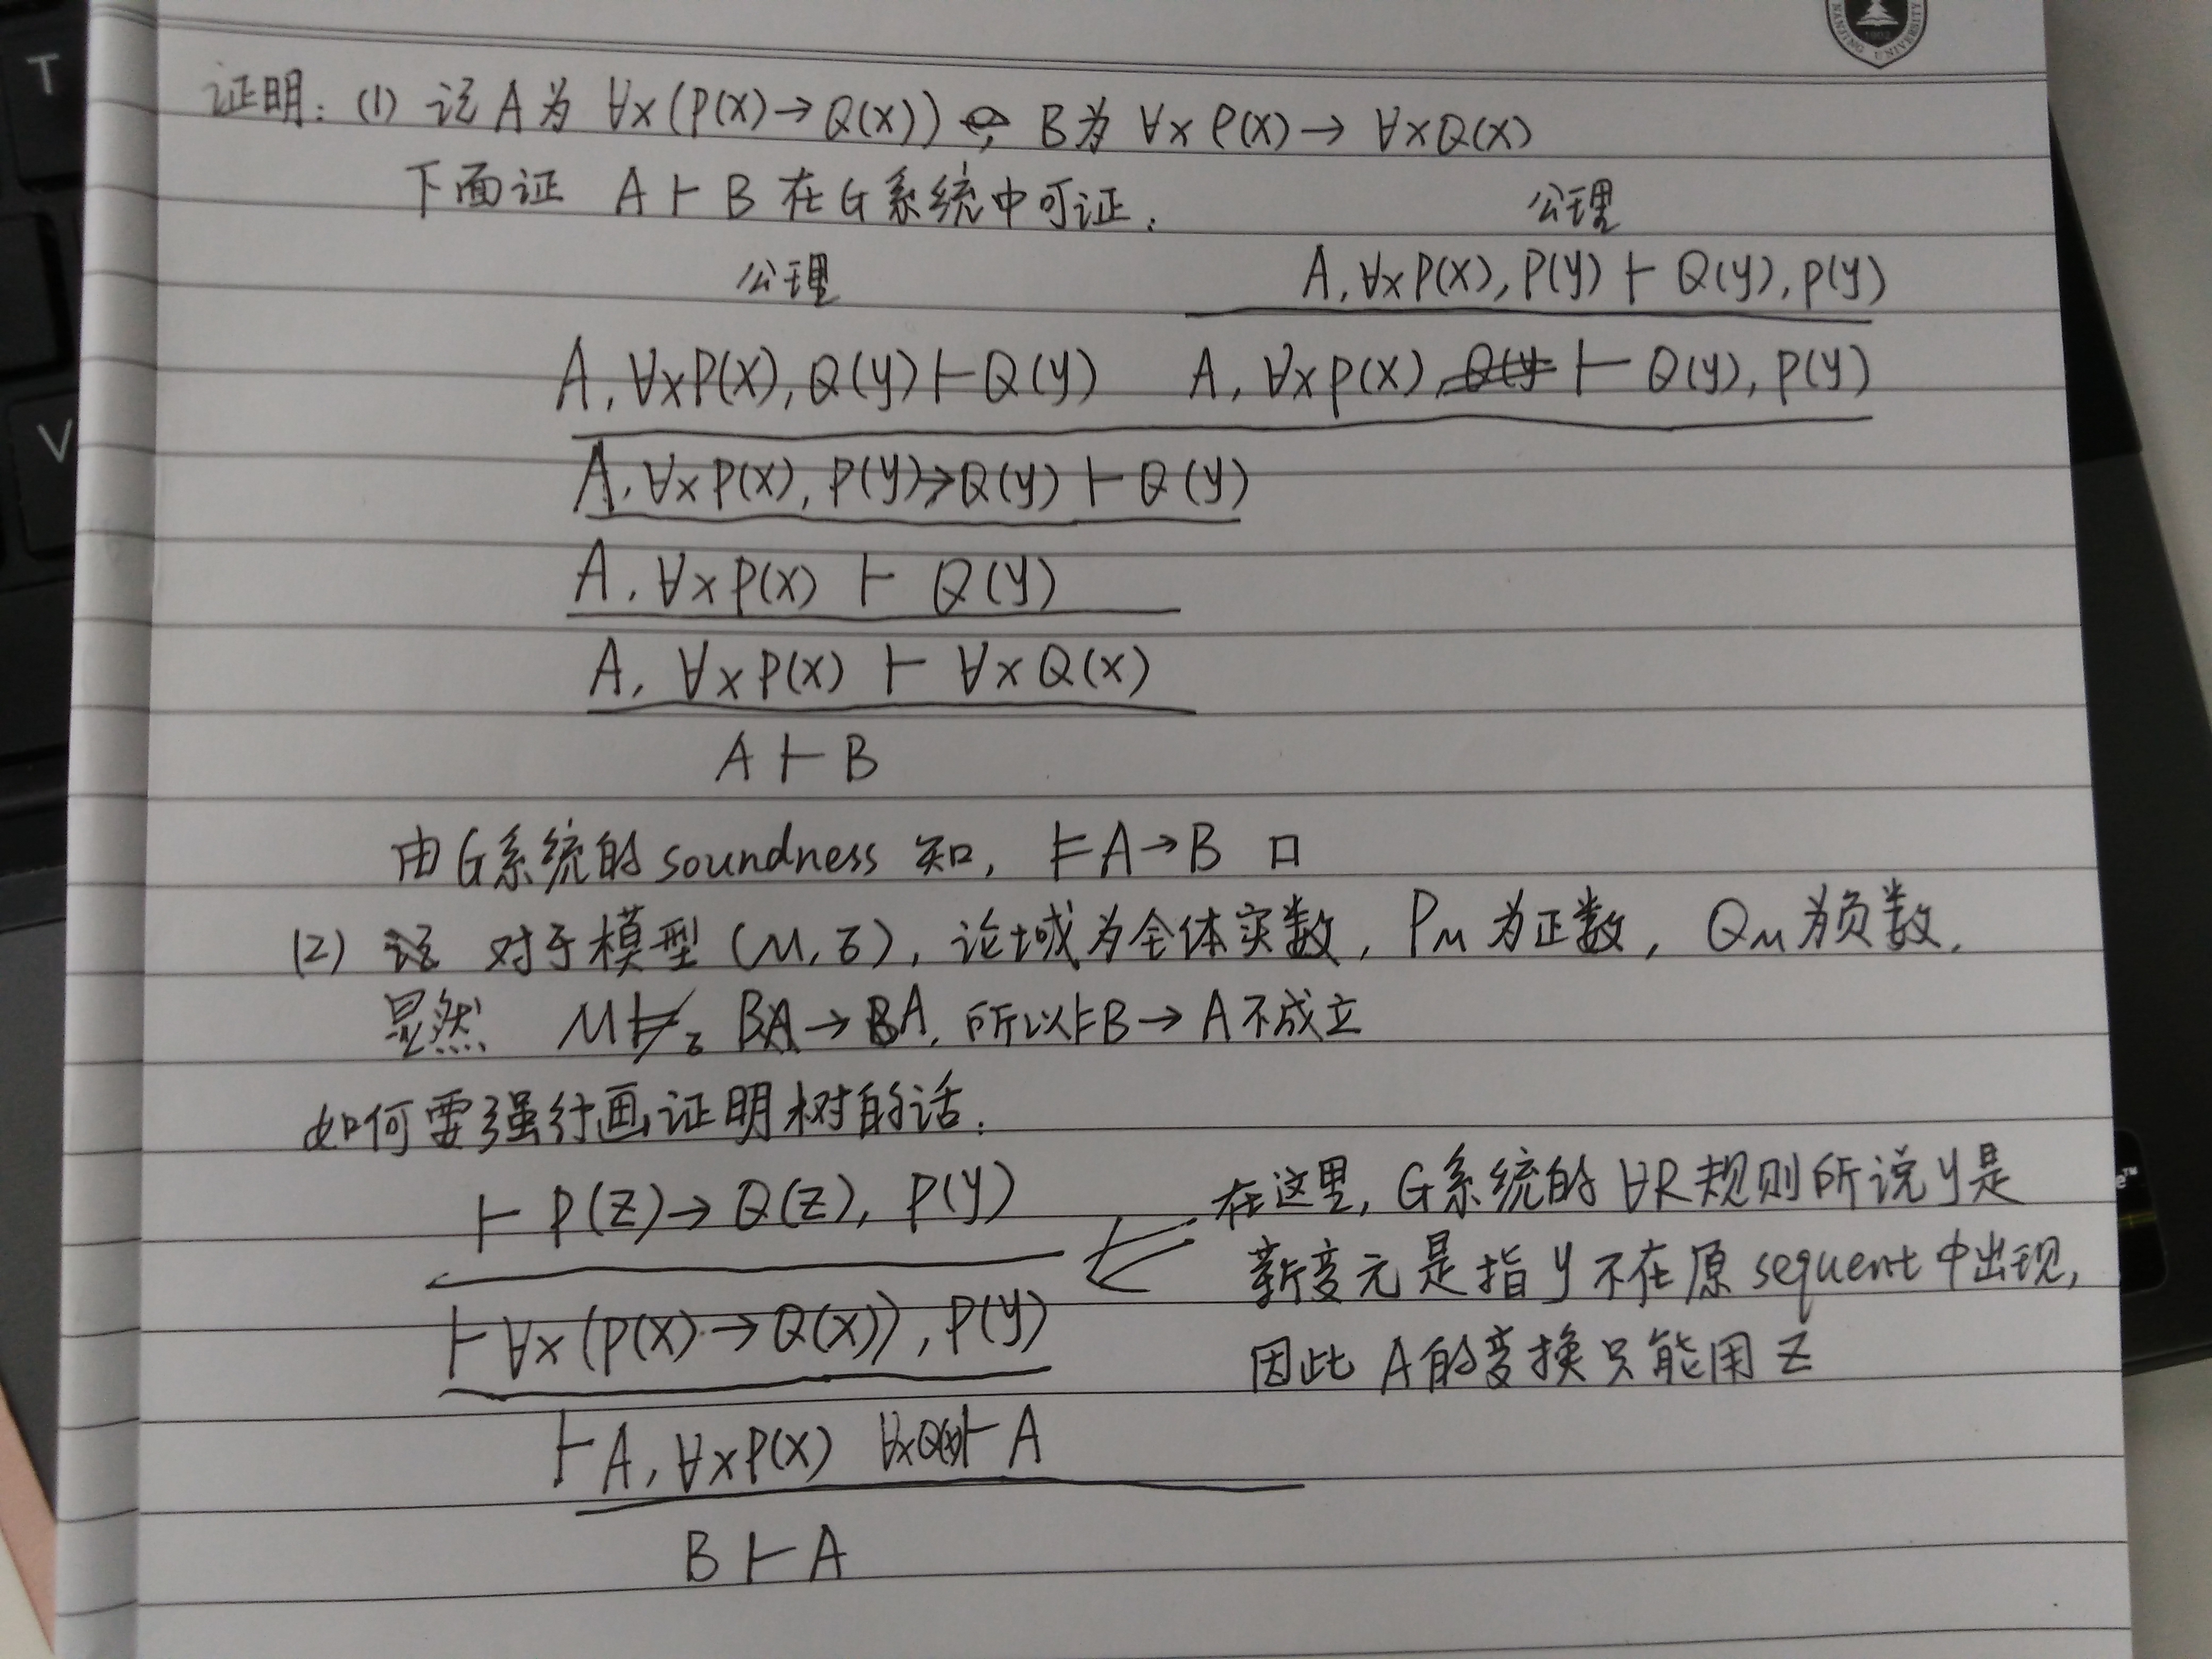 NANJING UNIVERSITY
1902
T
V
证明: (1) 记 A 为 ∀x(P(x)→Q(x)), B 为 ∀xP(x)→ ∀xQ(x)
下面证 A⊢B 在G系统中可证.
公理
公理
A, ∀xP(x), P(y) ⊢ Q(y), P(y)
A, ∀xP(x), Q(y) ⊢ Q(y) A, ∀xP(x) ⊢ Q(y), P(y)
A, ∀xP(x), P(y)→Q(y) ⊢ Q(y)
A, ∀xP(x) ⊢ Q(y)
A, ∀xP(x) ⊢ ∀xQ(x)
A ⊢ B
由G系统的soundness 知, ⊨A→B □
(2) 对于模型 (M, σ), 论域为全体实数, P_M 为正数, Q_M 为负数.
显然 M⊭_σ B→A, 所以⊨B→A不成立
如何要强行画证明树的话.
⊢ P(z)→Q(z), P(y)
在这里, G系统的∀R规则所说y是
新变元是指y不在原sequent中出现,
因此A的变换只能用z
⊢∀x(P(x)→Q(x)), P(y)
⊢A, ∀xP(x) ∀xQ(x)⊢A
B ⊢ A